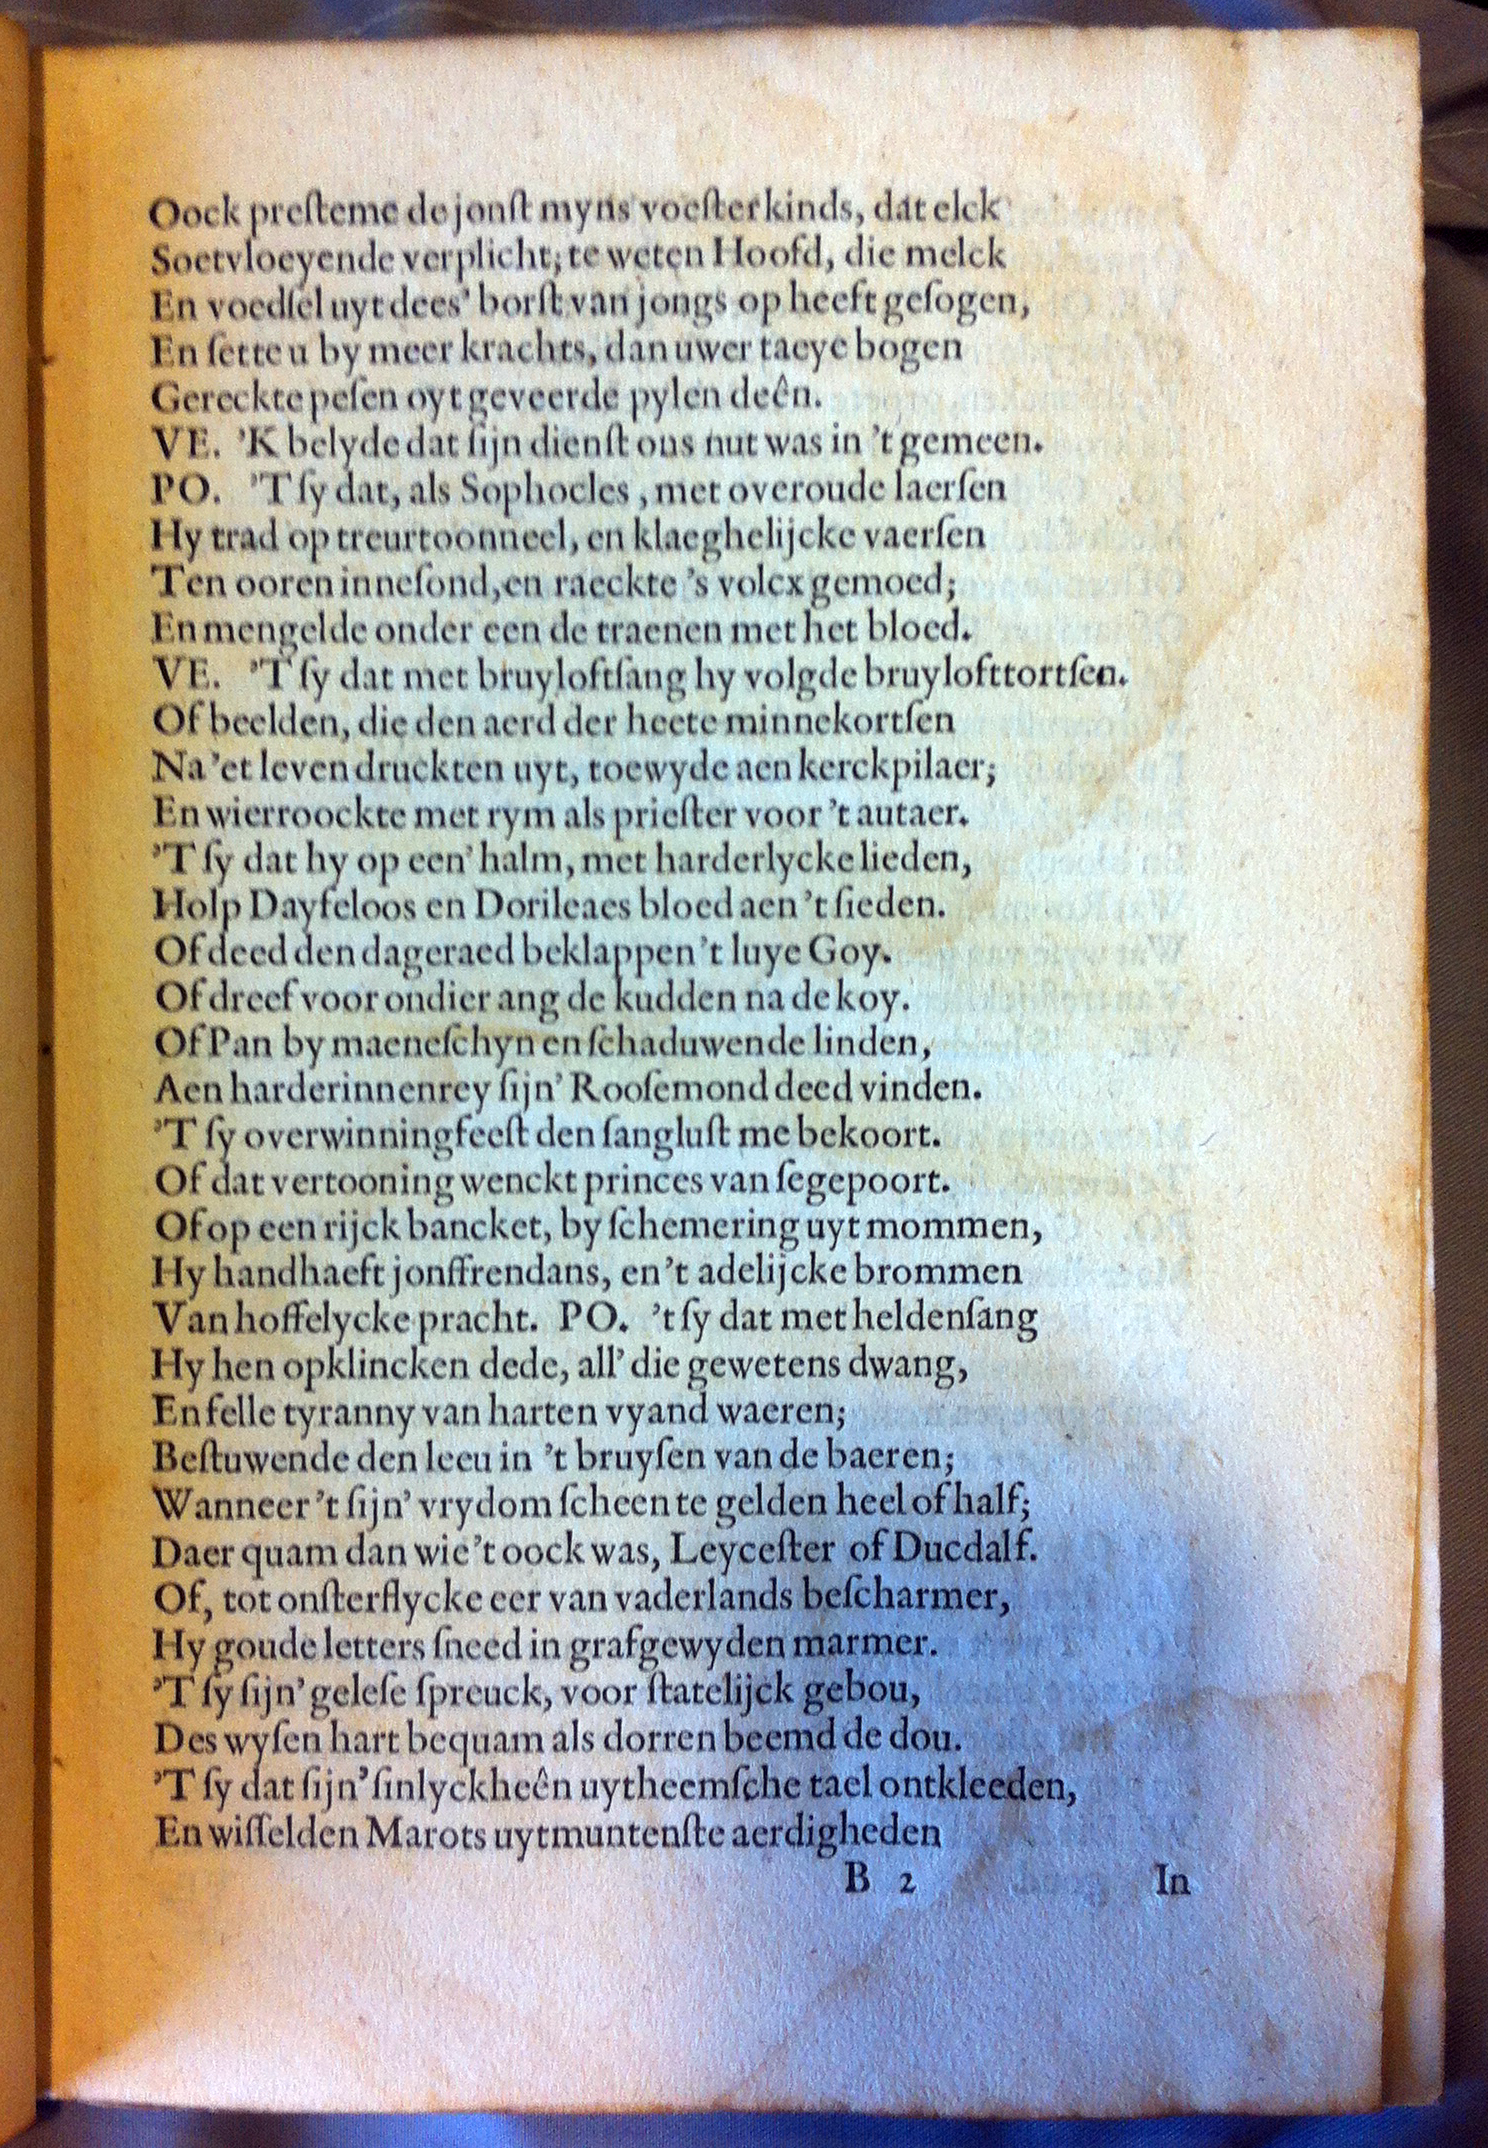 Oock preſteme de jonſt myns voeſterkinds, dat elck
Soetvloeyende verplicht; te weten Hoofd, die melck
En voedſel uyt dees' borſt van jongs op heeft geſogen,
En ſette u by meer krachts, dan uwer taeye bogen
Gereckte peſen oyt geveerde pylen deên.
VE. 'K belyde dat ſijn dienſt ons nut was in 't gemeen.
PO. 'T ſy dat, als Sophocles, met overoude laerſen
Hy trad op treurtoonneel, en klaeghelijcke vaerſen
Ten ooren inneſond, en raeckte 's volcx gemoed;
En mengelde onder een de traenen met het bloed.
VE. 'T ſy dat met bruyloftſang hy volgde bruylofttortſen.
Of beelden, die den aerd der heete minnekortſen
Na 'et leven druckten uyt, toewyde aen kerckpilaer;
En wierroockte met rym als prieſter voor 't autaer.
'T ſy dat hy op een' halm, met harderlycke lieden,
Holp Dayfeloos en Dorileaes bloed aen 't ſieden.
Of deed den dageraed beklappen 't luye Goy.
Of dreef voor ondier ang de kudden na de koy.
Of Pan by maeneſchyn en ſchaduwende linden,
Aen harderinnenrey ſijn' Rooſemond deed vinden.
'T ſy overwinningfeeſt den ſangluſt me bekoort.
Of dat vertooning wenckt princes van ſegepoort.
Of op een rijck bancket, by ſchemering uyt mommen,
Hy handhaeft jonffrendans, en 't adelijcke brommen
Van hoffelycke pracht. PO. 't ſy dat met heldenſang
Hy hen opklincken dede, all' die gewetens dwang,
En felle tyranny van harten vyand waeren;
Beſtuwende den leeu in 't bruyſen van de baeren;
Wanneer 't ſijn' vrydom ſcheen te gelden heel of half;
Daer quam dan wie 't oock was, Leyceſter of Ducdalf.
Of, tot onſterflycke eer van vaderlands beſcharmer,
Hy goude letters ſneed in grafgewyden marmer.
'T ſy ſijn' geleſe ſpreuck, voor ſtatelijck gebou,
Des wyſen hart bequam als dorren beemd de dou.
'T ſy dat ſijn' ſinlyckheên uytheemſche tael ontkleeden,
En wiſſelden Marots uytmuntenſte aerdigheden
B 2 In